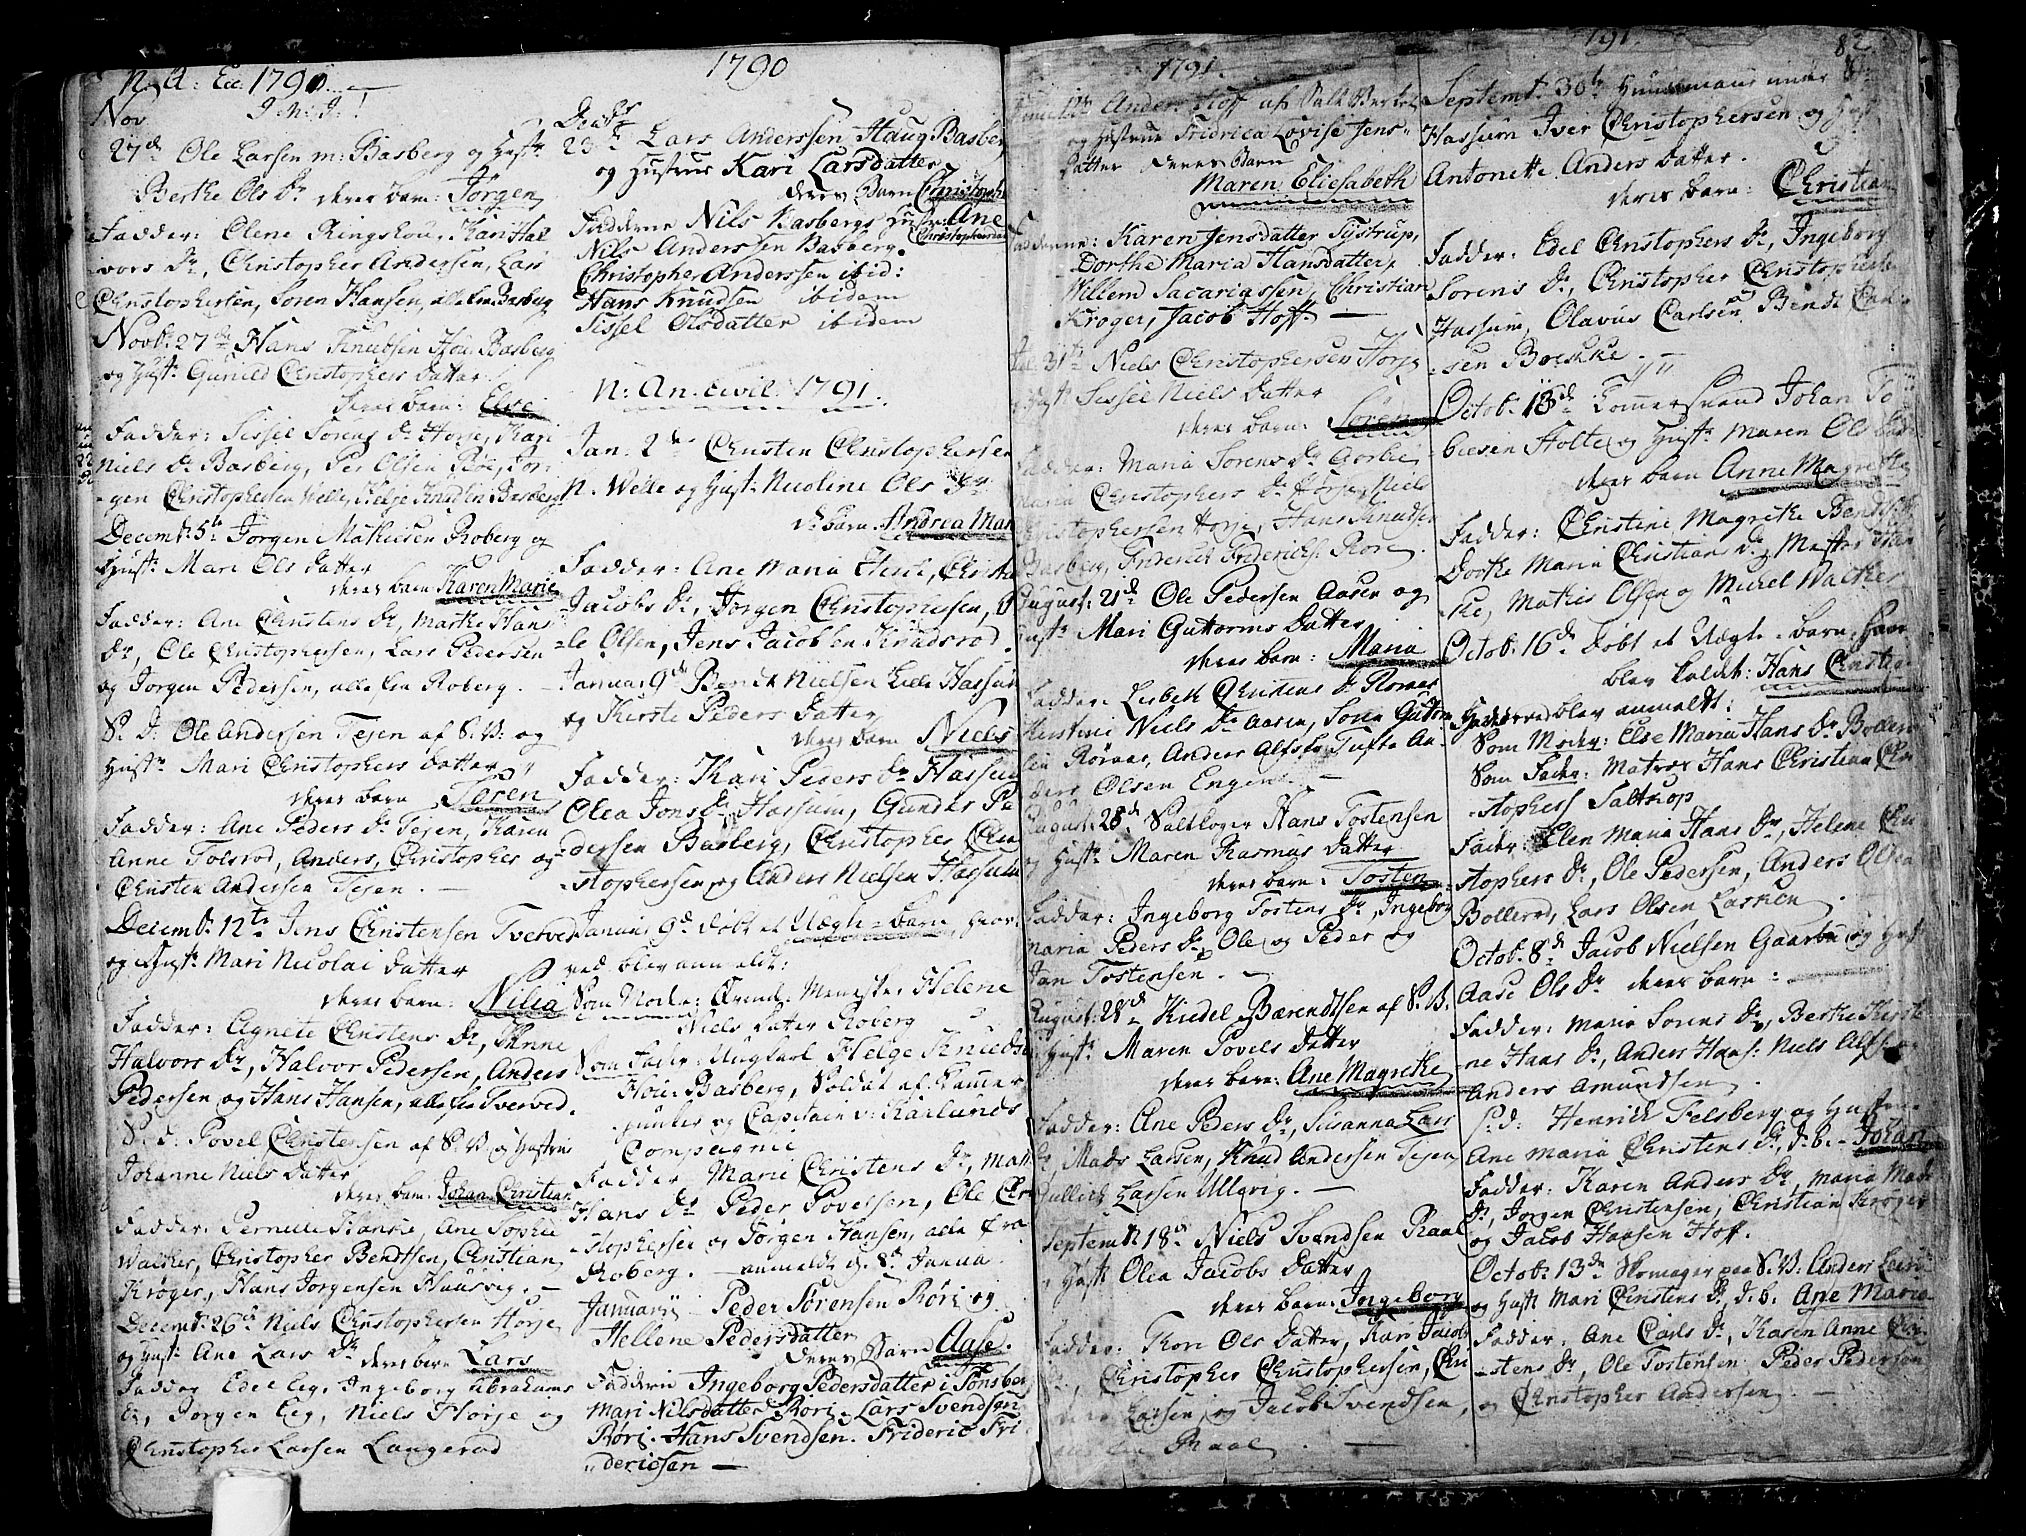 N: A: Ecc 1790
Nov J: N: J: !
27de Ole Larsen m: Basberg og Hustr:
Berthe Ols Dr deres barn: Jörgen
Fadder: Olene Ringshou, Kari Hal
vors Dr, Christopher Andersen, Lars
Christophersen, Soren Hansen, alle fra Basberg
Novb: 27de Hans Knudsen Hou Basberg
og Hustr: Gunild Christophers datter
deres barn: Else
Fadder: Sissel Sorens Dr Horje, Kari
Niels Dr Basberg, Per Olsen Röe, Jör-
gen Christophersen Welle, Helje Knudsen Basberg
Decemb: 5te Jorgen Mathiesen Roberg og
Hustr: Mari Ols datter
deres barn Karen Marie
Fadder: Ane Christens Dr, Marthe Hans
Dr, Ole Christophersen, Lars Pedersen
og Jorgen Pedersen, alle fra Roberg.
S: D: Ole Andersen Tejen af S: V: og
Hustr: Mari Christophers datter
deres barn Sören
Fadder: Ane Peders Dr Tejen, Karen
Anne Tolsrod, Anders, Christopher og
Christen Andersen Tejen.
Decemb: 12te Jens Christensen Tverved
og Hustr: Mari Nicolai datter
deres barn: Nilia
Fadder: Agnete Christens Dr, Anne
Halvors Dr, Halvor Pedersen, Anders
Pedersen og Hans Hansen, alle fra Tverved.
S: d: Povel Christensen af S: V: og Hustrue
Johanne Niels datter
deres barn: Johan Christian
Fadder: Pernille Hansd, Ane Sophie
Walcker, Christopher Bendtsen, Christian
Kröger, Hans Jorgensen Huusvig.
Decemb: 26de Niels Christophersen Horje
og Hust: Ane Lars Dr deres barn Lars
Fadder Edel Eeg, Ingeborg Abrahams
Dr, Jorgen Eeg, Niels Horje og
Christopher Larsen Langerod
1790
Decbr
23de Lars Anderssen Haug Basberg
og Hustrue Kari Larsdatter
deres Barn Christopher
Fadderne Nils Basbergs Hustr: Ane
Christophersdat
Nils Anderssen Basberg.
Christopher Anderssen ibid:
Hans Knudsen ibidem
Sissel Olsdatter ibidem
N: An. Civil: 1791.
Jan. 2de Christen Christophersen
N. Welle og Hust: Nicoline Ols Dr
ds barn: Andrea Mar
Fadder: Ane Maria Christ
Jacobs Dr, Jorgen Christophersen, O
le Olsen, Jens Jacobsen Knudsrod.
Januar 9de Bendt Nielsen Lille Hassum
og Kirste Peders datter
deres barn Niels
Fadder: Kari Peders Dr Hassum
Olea Jons Dr Hassum, Gunder Pe
dersen Basberg, Christopher Chri
stophersen og Anders Nielsen Hassum
Januari 9de döbt et Uægte-barn, hvor
ved blev anmeldt:
Som Moder: Qvind-Menneske Helene
Niels datter Roberg
Som Fader: Ungkarl Helge Knudsen
Hou: Basberg, Soldat af Kamer
junker og Capitain v: Karlunds
Compagnie
Fadder Marie Christens Dr, Mart
Hans Dr Peder Povelsen, Ole Chri
stophersen og Jörgen Hansen, alle fra
Roberg. anmeldt d. 8de Janua.
Januarii Peder Sörensen Röri og
Hellene Pedersdatter
deres Barn Aase.
Fadderne Ingeborg Pedersdatter i Tönsber
Mari Nilsdatter Röri. Lars Svendsen
Röri. Hans Svendsen. Frideric Fri
dericsen
1791.
Junii 12te Anders Hoff af Salt Verket
og Hustrue Fridrica Lovise Jens-
datter deres Barn
Maren Eliesabeth
Fadderne: Karen Jensdatter Tystrup,
Dorthe Maria Hansdatter,
Willem Sacariassen, Christian
Kröger, Jacob Hoff.
Jul. 31te Niels Christophersen Horje
og Hust: Sissel Niels datter
deres barn: Sören
Fadder: Maria Sorens Dr Aorbu
Maria Christophers Dr Horje, Niels
Christophersen Horje, Hans Knudsen
Basberg, Friderich Friderichs: Rore.
August: 21de Ole Pedersen Aasen og
Hustr: Mari Guttorms datter
deres barn: Maria
Fadder: Lisbeth Christens Dr Roraas
Kirstine Niels Dr Aasen, Soren Guttorm
sen Röraas, Anders Alfsen Tufte An
ders Olsen Engene.
August: 28de Saltkoger Hans Tostensen
og Hustr: Maren Rasmus datter
deres barn: Tosten
Fadder: Ingeborg Tostens Dr, Ingeborg
Maria Peders Dr, Ole og Peder og
Jan Tostensen.
August: 28de Kield Bærendtsen af S. V.
Hust: Maren Povels datter
deres barn: Ane Magrethe
Fadder: Ane Peders Dr, Susanna Lars
Dr, Mads Larsen, Knud Andersen Tejen
Gullich Larsen Ullevig.
Septemb 18de Niels Svendsen Raal
og Hust: Olea Jacobs datter
deres barn: Ingeborg
Fadder: Kari Ols datter, Kari Jacobs
Dr, Christopher Christophersen, Chri
Larsen, og Jacob Svendsen,
Raal
191. 82
Septemb: 30te Huusmand under S:
Hassum Iver Christophersen og Hust
Antonette Anders datter.
deres barn: Christian
Fadder: Edel Christophers Dr, Ingeborg
Sorens Dr, Christopher Christophersen
Hassum, Olavus Carlsen, Bendt Chri
sen Boeshke.
Octob. 13de Tommermand Johan To
biesen Holte og Hustr: Maren Ols Dat
deres barn Anne Magrethe
Fadder: Christine Magrethe Bendts Dr
Dorthe Maria Christians Dr, Mester Han
ke, Mathis Olsen og Michel Walcker
Octob: 16de döbt et Uægte-barn, som
blev kaldet: Hans Christian
Hvorved blev anmeldt:
Som Moder: Else Maria Hans Dr Bollerod
Som Fader: Matros Hans Christian Chri
stophers Saltrop
Fadder: Elen Maria Hans Dr, Helene Chri
stophers Dr, Ole Pedersen, Anders Olsen
Bollerod, Lars Olsen Lasken.
Octob. 8de Jacob Nielsen Gaarbu og Hust
Aase Ols Dr deres barn:
Fadder: Maria Sorens Dr, Berthe Kirsti
ne Hans Dr, Anders Hans: Niels Alfs: og
Anders Amundsen.
S: D: Henrich Felsberg og Hustrue
Ane Maria Christens Dr, d: b. Johan
Fadder: Karen Anders Dr, Maria Mads
Dr, Jorgen Christensen, Christian Kröger
og Jacob Hansen Hoff.
Octob: 13de Skomager paa S: V: Anders Lars
og Hust: Mari Christens Dr, d. b. Ane Maria
Fadder: Ane Carls Dr, Karen Anne Chri
stens Dr, Ole Tostensen, Peder Pedersen
og Christopher Andersen.